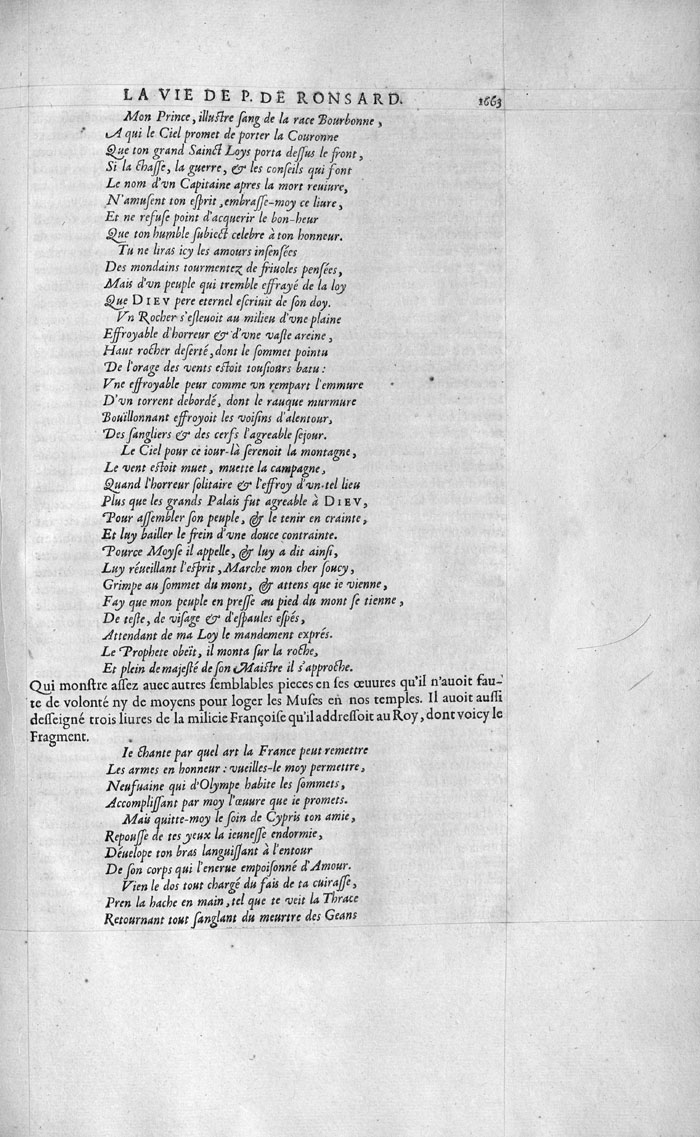 LA VIE DE P. DE RONSARD. 1663
Mon Prince, illuſtre ſang de la race Bourbonne,
A qui le Ciel promet de porter la Couronne
Que ton grand Sainct Loys porta deſſus le front,
Si la chaſſe, la guerre, & les conſeils qui font
Le nom d'vn Capitaine apres la mort reuiure,
N'amuſent ton eſprit, embraſſe-moy ce liure,
Et ne refuſe point d'acquerir le bon-heur
Que ton humble ſubiect celebre à ton honneur.
Tu ne liras icy les amours inſenſées
Des mondains tourmentez de friuoles penſées,
Mais d'vn peuple qui tremble effrayé de la loy
Que DIEV pere eternel eſcriuit de ſon doy.
Vn Rocher s'eſleuoit au milieu d'vne plaine
Effroyable d'horreur & d'vne vaſte areine,
Haut rocher deſerté, dont le ſommet pointu
De l'orage des vents eſtoit touſiours batu:
Vne effroyable peur comme vn rempart l'emmure
D'vn torrent debordé, dont le rauque murmure
Bouillonnant effroyoit les voiſins d'alentour,
Des ſangliers & des cerfs l'agreable ſejour.
Le Ciel pour ce iour-là ſerenoit la montagne,
Le vent eſtoit muet, muette la campagne,
Quand l'horreur ſolitaire & l'effroy d'vn tel lieu
Plus que les grands Palais fut agreable à DIEV,
Pour aſſembler ſon peuple, & le tenir en crainte,
Et luy bailler le frein d'vne douce contrainte.
Pource Moyſe il appelle, & luy a dit ainſi,
Luy réueillant l'eſprit, Marche mon cher ſoucy,
Grimpe au ſommet du mont, & attens que ie vienne,
Fay que mon peuple en preſſe au pied du mont ſe tienne,
De teſte, de viſage & d'eſpaules eſpés,
Attendant de ma Loy le mandement exprés.
Le Prophete obeït, il monta ſur la roche,
Et plein de majeſté de ſon Maiſtre il s'approche.
Qui monſtre aſſez auec autres ſemblables pieces en ſes œuures qu'il n'auoit fau-
te de volonté ny de moyens pour loger les Muſes en nos temples. Il auoit auſſi
deſſeigné trois liures de la milicie Françoiſe qu'il addreſſoit au Roy, dont voicy le
Fragment.
Ie chante par quel art la France peut remettre
Les armes en honneur: vueilles-le moy permettre,
Neufuaine qui d'Olympe habite les ſommets,
Accompliſſant par moy l'œuure que ie promets.
Mais quitte-moy le ſoin de Cypris ton amie,
Repouſſe de tes yeux la ieuneſſe endormie,
Déuelope ton bras languiſſant à l'entour
De ſon corps qui l'enerue empoiſonné d'Amour.
Vien le dos tout chargé du fais de ta cuiraſſe,
Pren la hache en main, tel que te veit la Thrace
Retournant tout ſanglant du meurtre des Geans